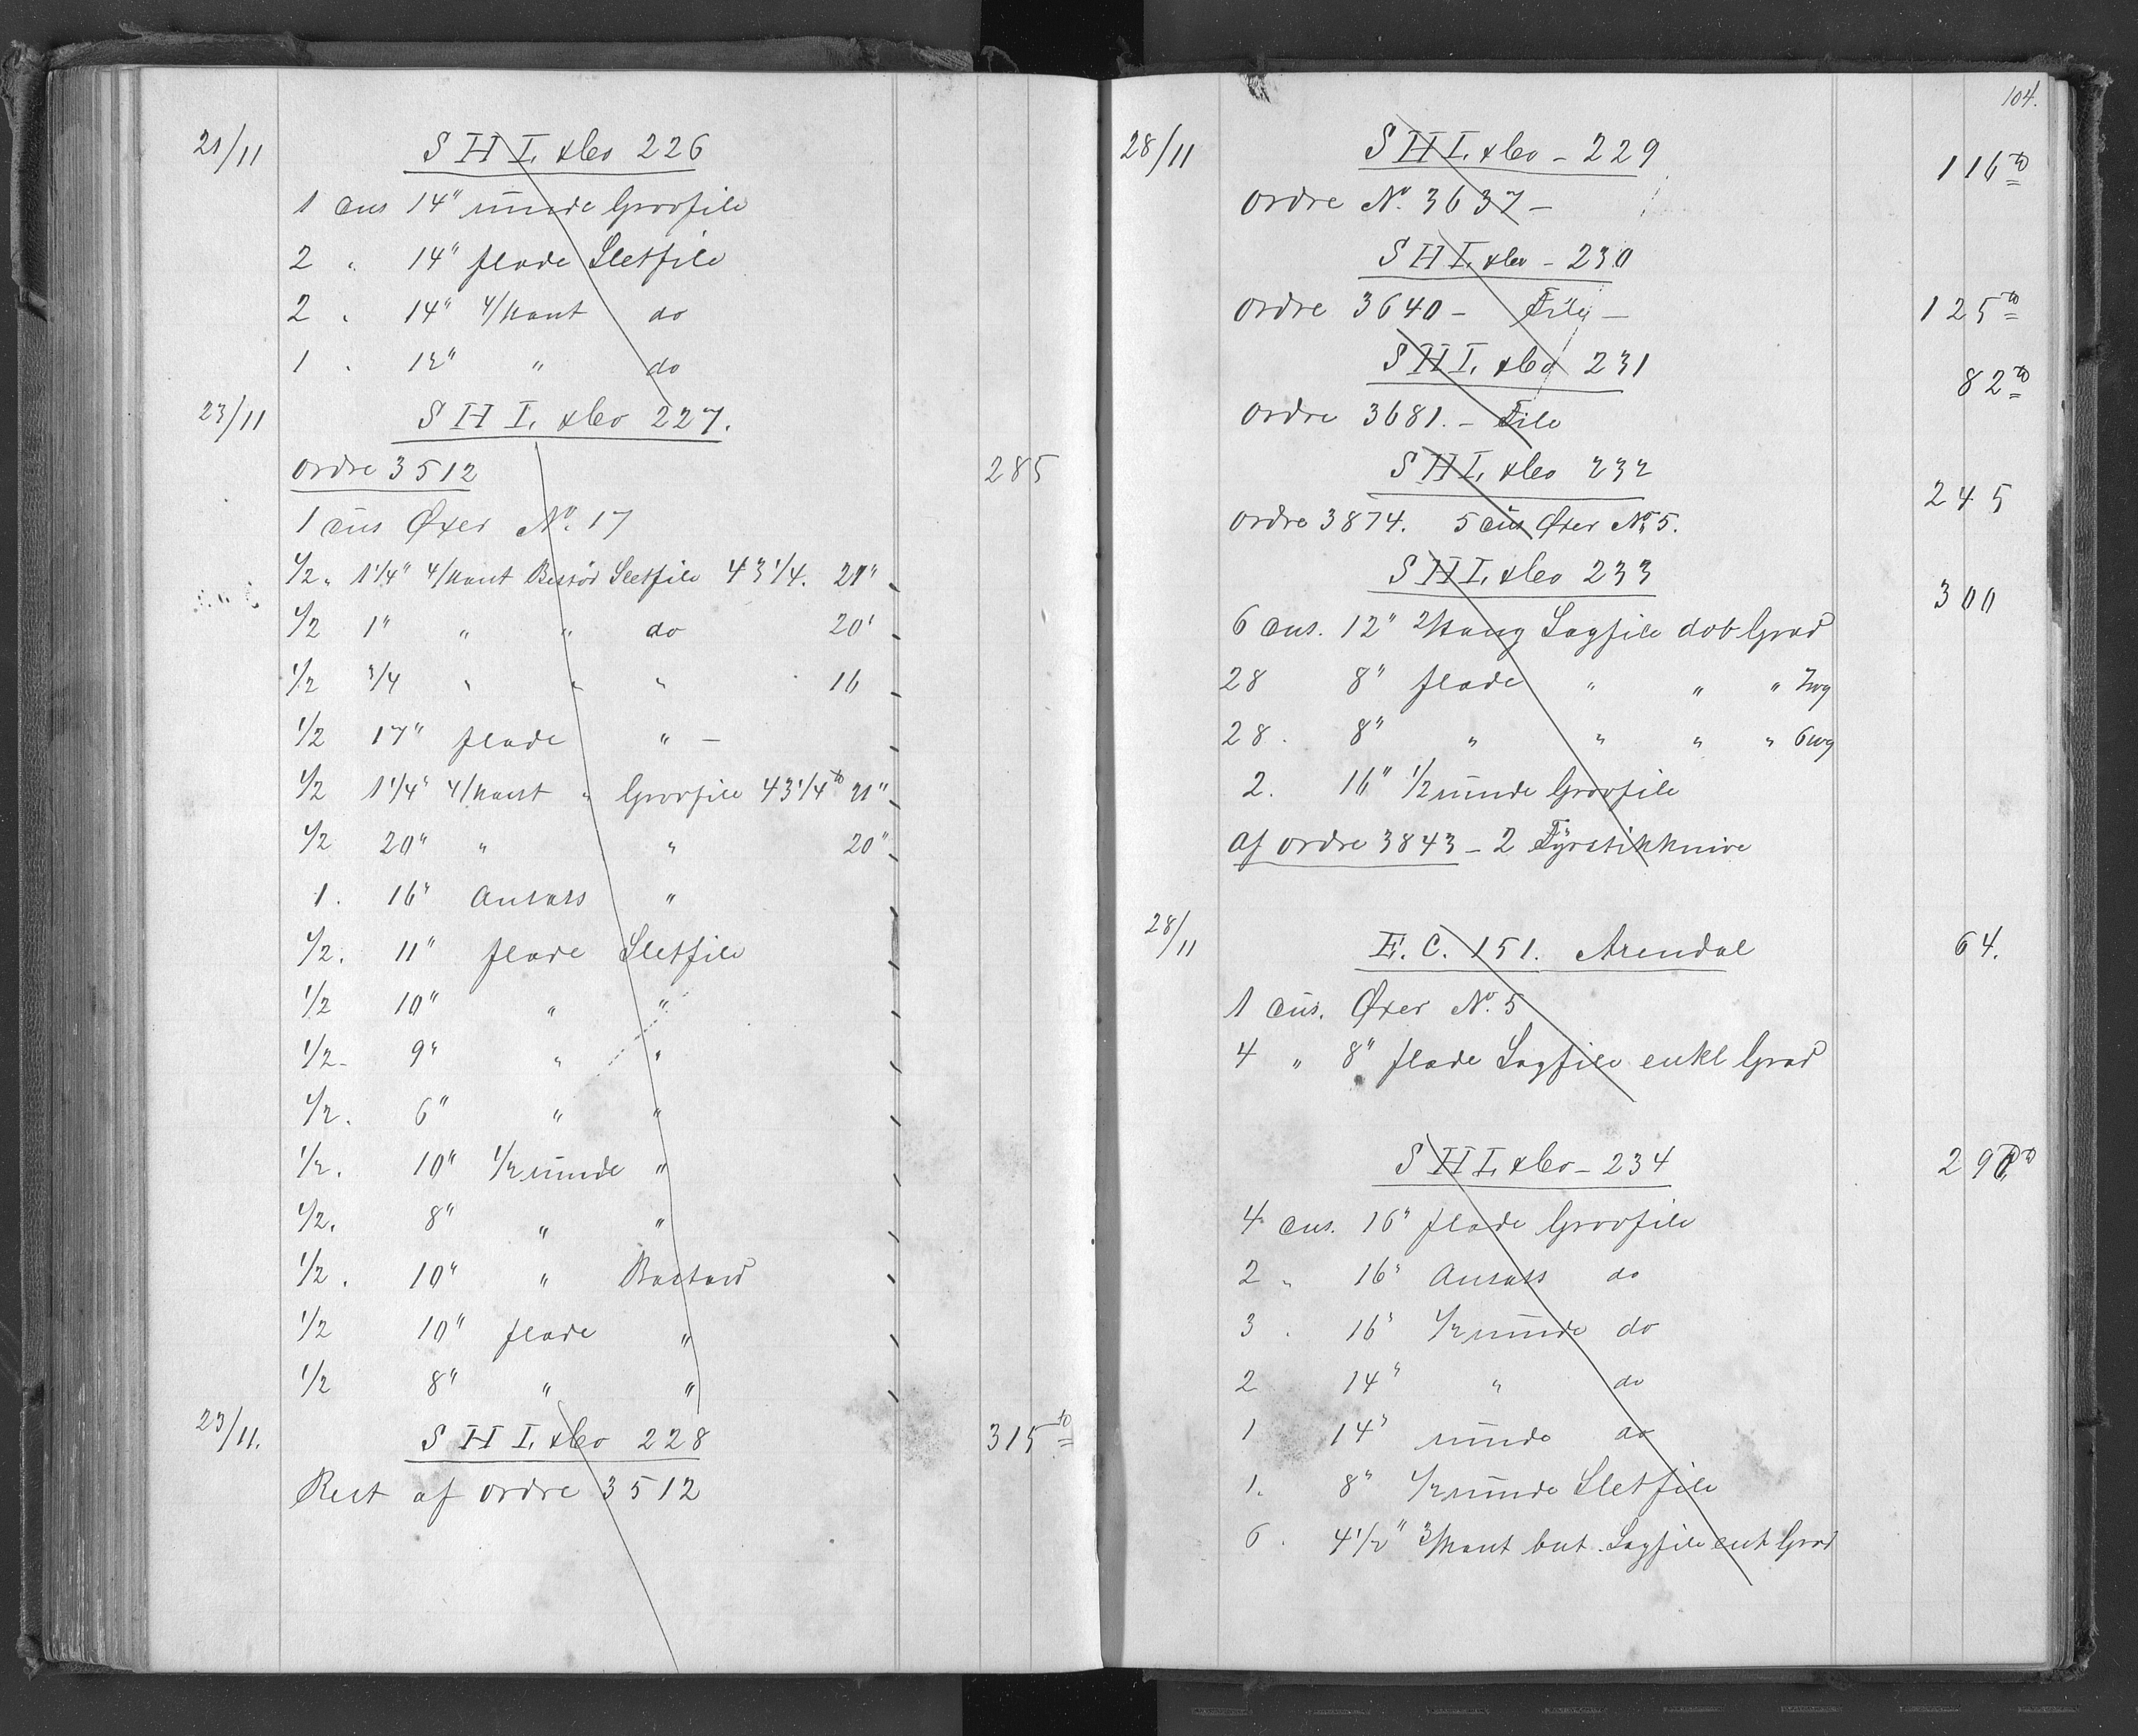 21/11 S H I. & Co 226
1 Dus 14" runde Grovfile
2 " 14" flade Sletfile
2 " 14" 4/kant do
1 " 12" " do
23/11 S H I. & Co 227.
ordre 3512 285
1 Dus Øxer No. 17
1/2 " 1 1/4" 4/kant Sletfile 43 1/4. 21"
1/2 1" " " do 20"
1/2 3/4 " " " 16
1/2 17" flade " –
1/2 1 1/4" 4/kant " Grovfile 43 1/4 21"
1/2 20" " " 20"
1. 16" Ansats "
1/2. 11" flade Sletfile
1/2 10" " "
1/2 - 9" " "
1/2. 6" " "
1/2. 10" 1/2 runde "
1/2. 8" " "
1/2. 10" " Bastard
1/2 10" flade "
1/2 8" " "
23/11. S H I. & Co 228 315
Rest af ordre 3512
104.
28/11 S H I. & Co - 229 116
ordre No. 3637 -
S H I. & Co - 230
ordre 3640 - File - 125
S H I. & Co 231 82
ordre 3681. - File
S H I. & Co 232 245
ordre 3874. 5 Dus Øxer No 5.
S H I. & Co 233 300
6 Dus. 12" 2/kang Sagfile dob Grad
28 8" flade " " "
28. 8" " " " "
2. 16" 1/2 runde Grovfile
Af ordre 3843 - 2 Fyrstikknive
28/11 E. C. 151. Arendal 64.
1 Dus. Øxer No. 5
4 " 8" flade Sagfile enkl Grad
S H I. & Co - 234
4 Dus. 16" flade Grovfile
2 " 16" Ansats do
3 . 16" 1/2 runde do
2 14" " do
1 14" runde do
1. 8" 1/2 runde Sletfile
6 . 4 1/2" 3/kant but. Sagfile enk Grad